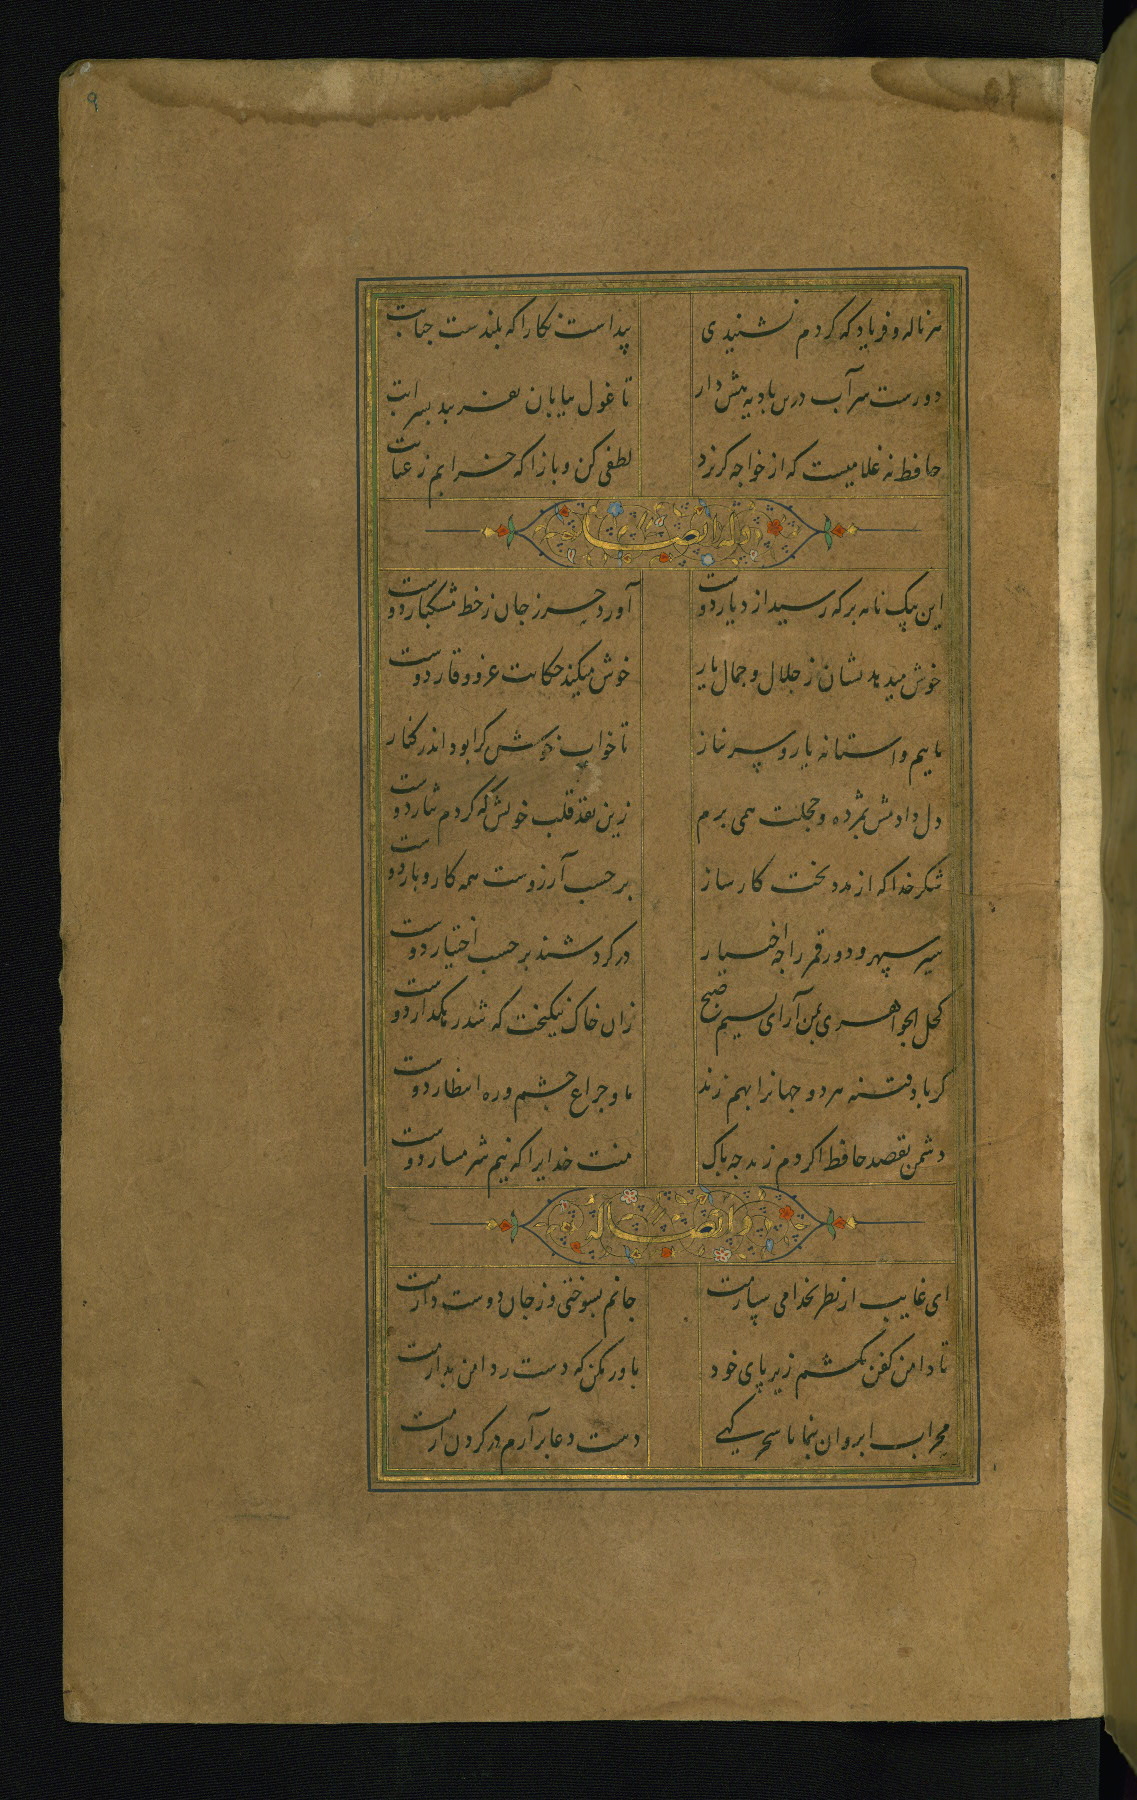 ۹
هر ناله و فریاد که کردم نشنیدی
پیداست نگارا که بلندست جنابت
دورست سر آب درین بادیه هش دار
تا غول بیابان نفریبد بسرابت
حافظ نه غلامیست که از خواجه گریزد
لطفی کن و بازآ که خرابم ز عتابت
وله ایضا
این پیک نامه بر که رسید از دیار دوست
آورد حرز جان ز خط مشکبار دوست
خوش میدهد نشان ز جلال و جمال یار
خوش میکند حکایت عز و وقار دوست
ماییم و استانه یار و سر نیاز
تا خواب خوش کرا بود اندر کنار
دل دادمش بمژده و خجلت همی برم
زین نقد قلب خویش که کردم نثار دوست
شکر خدا که از مدد بخت کارساز
بر حسب آرزوست همه کار و بار دوست
سیر سپهر و دور قمر را چه اختیار
در گردشند بر حسب اختیار دوست
کحل الجواهری بمن آر ای نسیم صبح
زان خاک نیکبخت که شد رهگذار دوست
گر باد فتنه هر دو جهانرا بهم زند
ما و چراغ چشم و ره انتظار دوست
دشمن بقصد حافظ اگر دم زند چه باک
منت خدایرا که نیم شرمسار دوست
وله ایضا
ای غایب از نظر بخدا می سپارمت
جانم بسوختی و ز جان دوست دارمت
تا دامن کفن نکشم زیر پای خود
باور مکن که دست ز دامن بدارمت
محراب ابروان بنما تا سحرگهی
دست دعا برآرم و در گردن آرمت